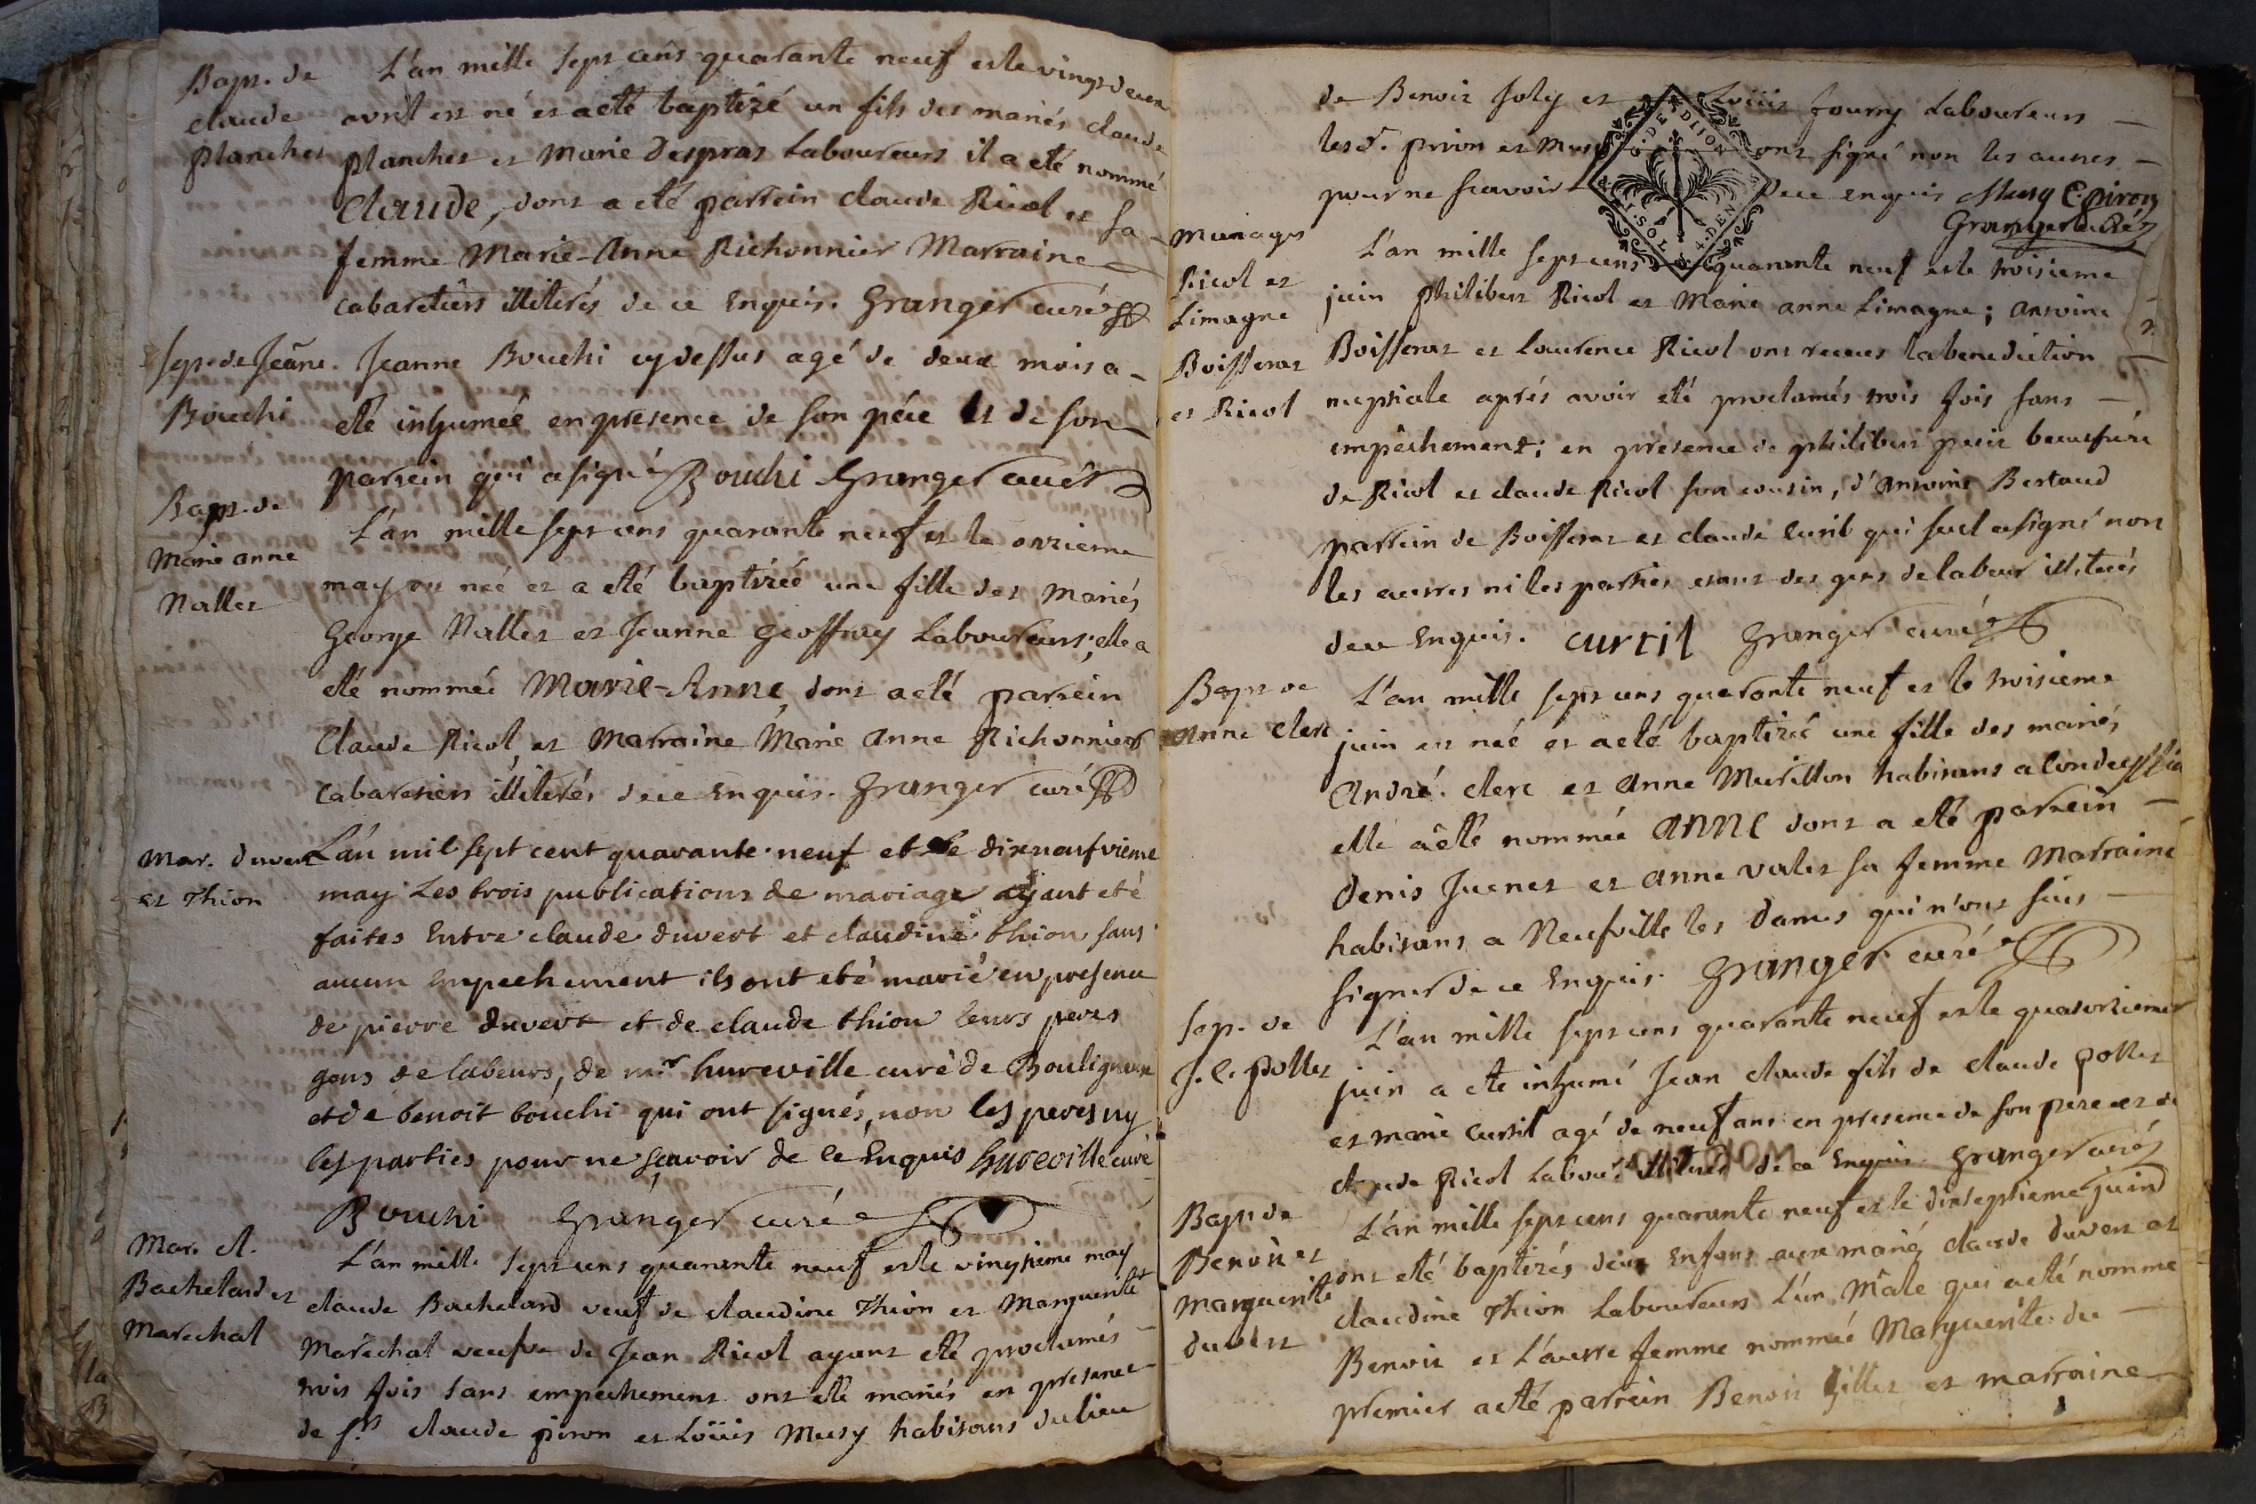 Bapt. de
claude
planches
L'an mille sept cens quarante neuf et le vingt deux
avril est né et a eté baptizé un fils des mariés claude
planches et Marie Despras Laboureurs il a eté nommé
Claude, dont a eté parrein claude Ricol et sa
femme Marie-Anne Richonnier Marraine
cabaretiers illiterés de ce Enquis. Granger curé
sep. de Jeane
Bouchi
Jeanne Bouchi cydessus agé de deux mois a
eté inhumeé en presence de son pére et de son
parrein qui a signé Bouchi Granger curé
Bapt. de
Marie anne
Nallet
L'an mille sept cens quarante neuf et le onzieme
may est neé et a eté baptizeé une fille des Mariés
George Nallet et Jeanne Geoffray Laboureurs; elle a
eté nommeé Marie-Anne, dont a eté parrein
Claude Ricol, et Marraine Marie Anne Richonnier
cabaretiers illiterés de ce Enquis. Granger curé
Mar. duvert
et Thion
L'an mil sept cent quarante neuf et le dixneufvieme
may Les trois publications de mariage ayant eté
faites Entre claude duvert et claudine thion sans
aucun Empechement ils ont eté marié en presence
de pierre duvert et de claude thion leurs peres
gens de labeurs, de mr hureville curé de Bouligneux
et de benoit bouchi qui ont signés, non les peres ny
les parties pour ne sçavoir de ce Enquis hureville curé
Bouchi Granger curé
Mar. cl.
Bachelard et
Marechal
L'an mille sept cens quarante neuf et le vingtieme may
claude Bachelard veuf de claudine Thion et Marguerite
Maréchal veufve de Jean Ricol ayant eté proclamés
trois fois sans empechement ont eté mariés en presence
de srs claude piron et Loüis Musy habitans du lieu
de Benoit Joly et Loüis fourny Laboureurs
lesd. piron et Musy ont signé non les autres
pour ne scavoir de ce enquis Musy C. piron
Granger curé
G. DE DIJON
Mariages
Ricol et
Limagne
Boisserat
et Ricol
L'an mille sept cens quarante neuf et le troisieme
juin philibert Ricol et Marie anne Limagne; antoine
Boisserat et Laurence Ricol ont receus la benediction
nuptiale aprés avoir eté proclamés trois fois sans
empêchement; en presence de philibert beaufrere
de Ricol et claude Ricol son cousin, d'antoine Bertaud
parrein de Boisserat et claude curtil qui seul a signé non
les autres ni les parties etant des gens de labeur illiterés
de ce Enquis. curtil Granger curé
Bapt de
Anne clerc
L'an mille sept cens quarante neuf et le troisieme
juin est neé et a eté baptizeé une fille des mariés
André clerc et Anne Murillon habitans a Condeyssia
elle a eté nommeé ANNE dont a eté parrein
denis Juenet et anne valet sa femme Marraine
habitans a Neufville les dames qui n'ont sçu
signer de ce Enquis. Granger curé
sep. de
J. C. pollet
L'an mille sept cens quarante neuf et le quatorzieme
juin a eté inhumé Jean claude fils de claude pollet
et marie curtil agé de neuf ans en presence de son pere et de
claude Ricol Labour. illiterés de ce Enquis. Granger curé
Bapt de
Benoit et
Marguerite
duvert
L'an mille sept cens quarante neuf et le dixseptieme juin
ont eté baptizés deux Enfans aux mariés claude duvert et
claudine Thion Laboureurs L'un Mâle qui a eté nommé
Benoit et L'autre femme nommeé Marguerite. du
premier a eté parrein Benoit Gillet et marraine